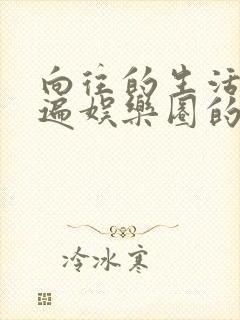 向往的生活
遍娱乐圈的
冷冰寒